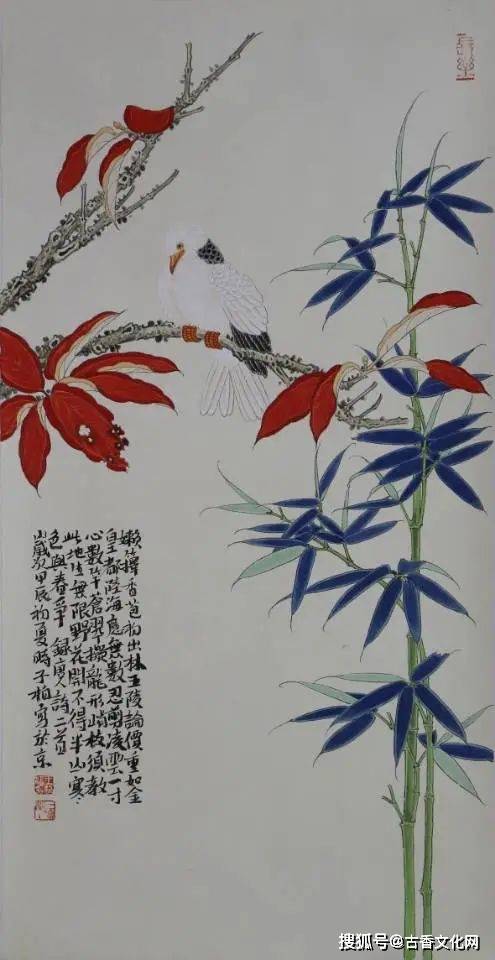 嫩籜香苞初出林五陵論價重如金
皇都陸海應無數忍剪凌雲一寸
心數竿蒼翠擬龍形峭拔須教
此地生無限野花開不得半山寒
色與春爭錄唐人詩二首
歲次甲辰初夏時子柏寫於京
搜狐号@古香文化网